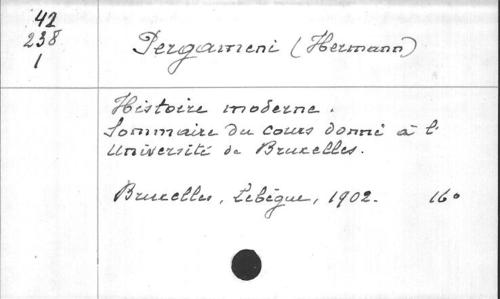 42
238
1
Pergameni (Hermann)
Histoire moderne.
Sommaire du cours donné à l'
Université de Bruxelles.
Bruxelles, Lebègue, 1902. 16°